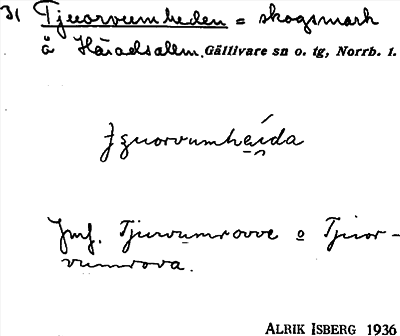 31 Tjuorvumheden = skogsmark
å Häradsalem. Gällivare sn o. tg, Norrb. l.
Jmf. Tjurvumrovve o Tjuor-
vumrova.
ALRIK ISBERG 1936